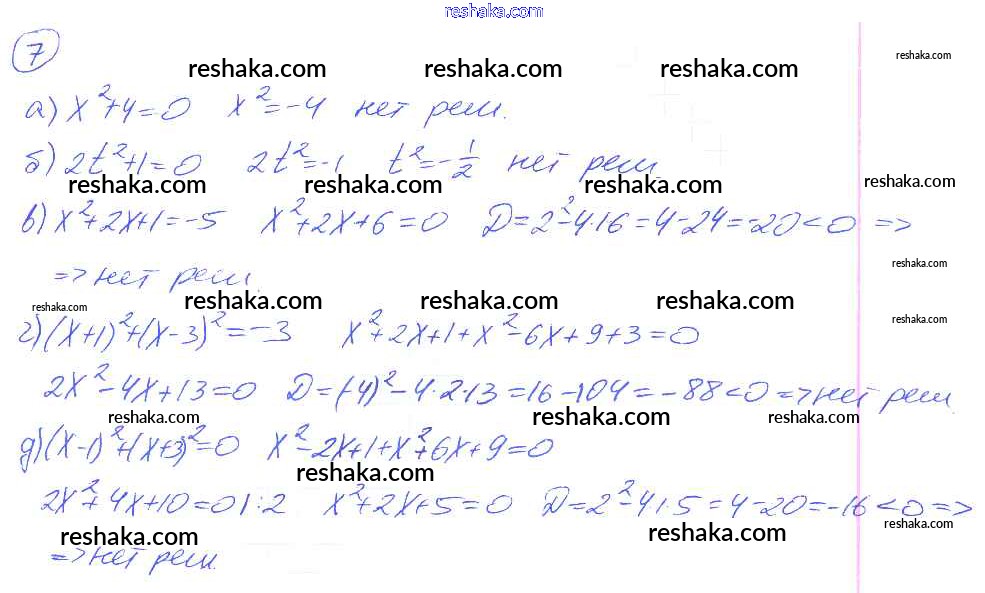 reshaka.com
7
reshaka.com reshaka.com reshaka.com reshaka.com
а) x²+4=0 x²=-4 нет реш.
б) 2t²+1=0 2t²=-1 t²=-1/2 нет реш.
reshaka.com reshaka.com reshaka.com reshaka.com
в) x²+2x+1=-5 x²+2x+6=0 D=2²-4·1·6=4-24=-20<0 =>
=> нет реш.
reshaka.com
reshaka.com reshaka.com reshaka.com reshaka.com reshaka.com
г) (x+1)²+(x-3)²=-3 x²+2x+1+x²-6x+9+3=0
2x²-4x+13=0 D=(-4)²-4·2·13=16-104=-88<0 => нет реш.
reshaka.com reshaka.com reshaka.com
д) (x-1)²+(x+3)²=0 x²-2x+1+x²+6x+9=0
reshaka.com
2x²+4x+10=0 |:2 x²+2x+5=0 D=2²-4·5=4-20=-16<0 =>
reshaka.com reshaka.com reshaka.com
=> нет реш.